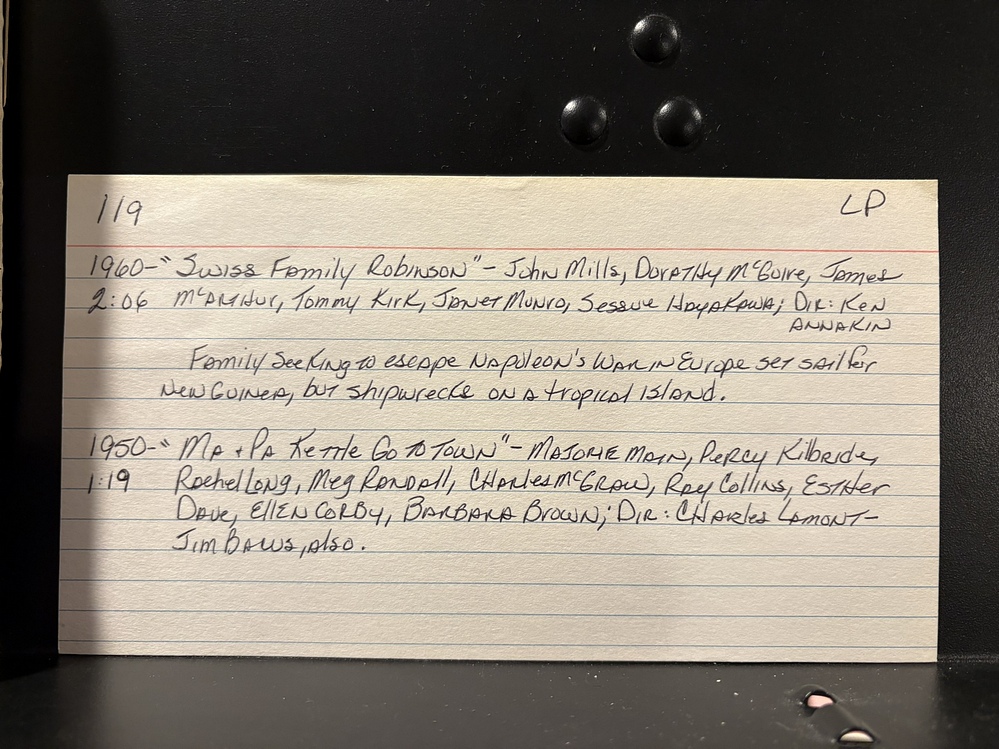 119 LP
1960- "Swiss Family Robinson" - John Mills, Dorathy McGuire, James
2:06 McArthur, Tommy Kirk, Janet Munro, Sessue Hayakawa; Dir: Ken
Annakin
Family seeking to escape Napoleon's War in Europe set sail for
New Guinea, but shipwrecks on a tropical island.
1950- "Ma + Pa Kettle Go To Town" - Majorie Main, Percy Kilbride,
1:19 Rachel Long, Meg Randall, Charles McGraw, Ray Collins, Esther
Dale, Ellen Corby, Barbara Brown; Dir: Charles Lamont-
Jim , also.